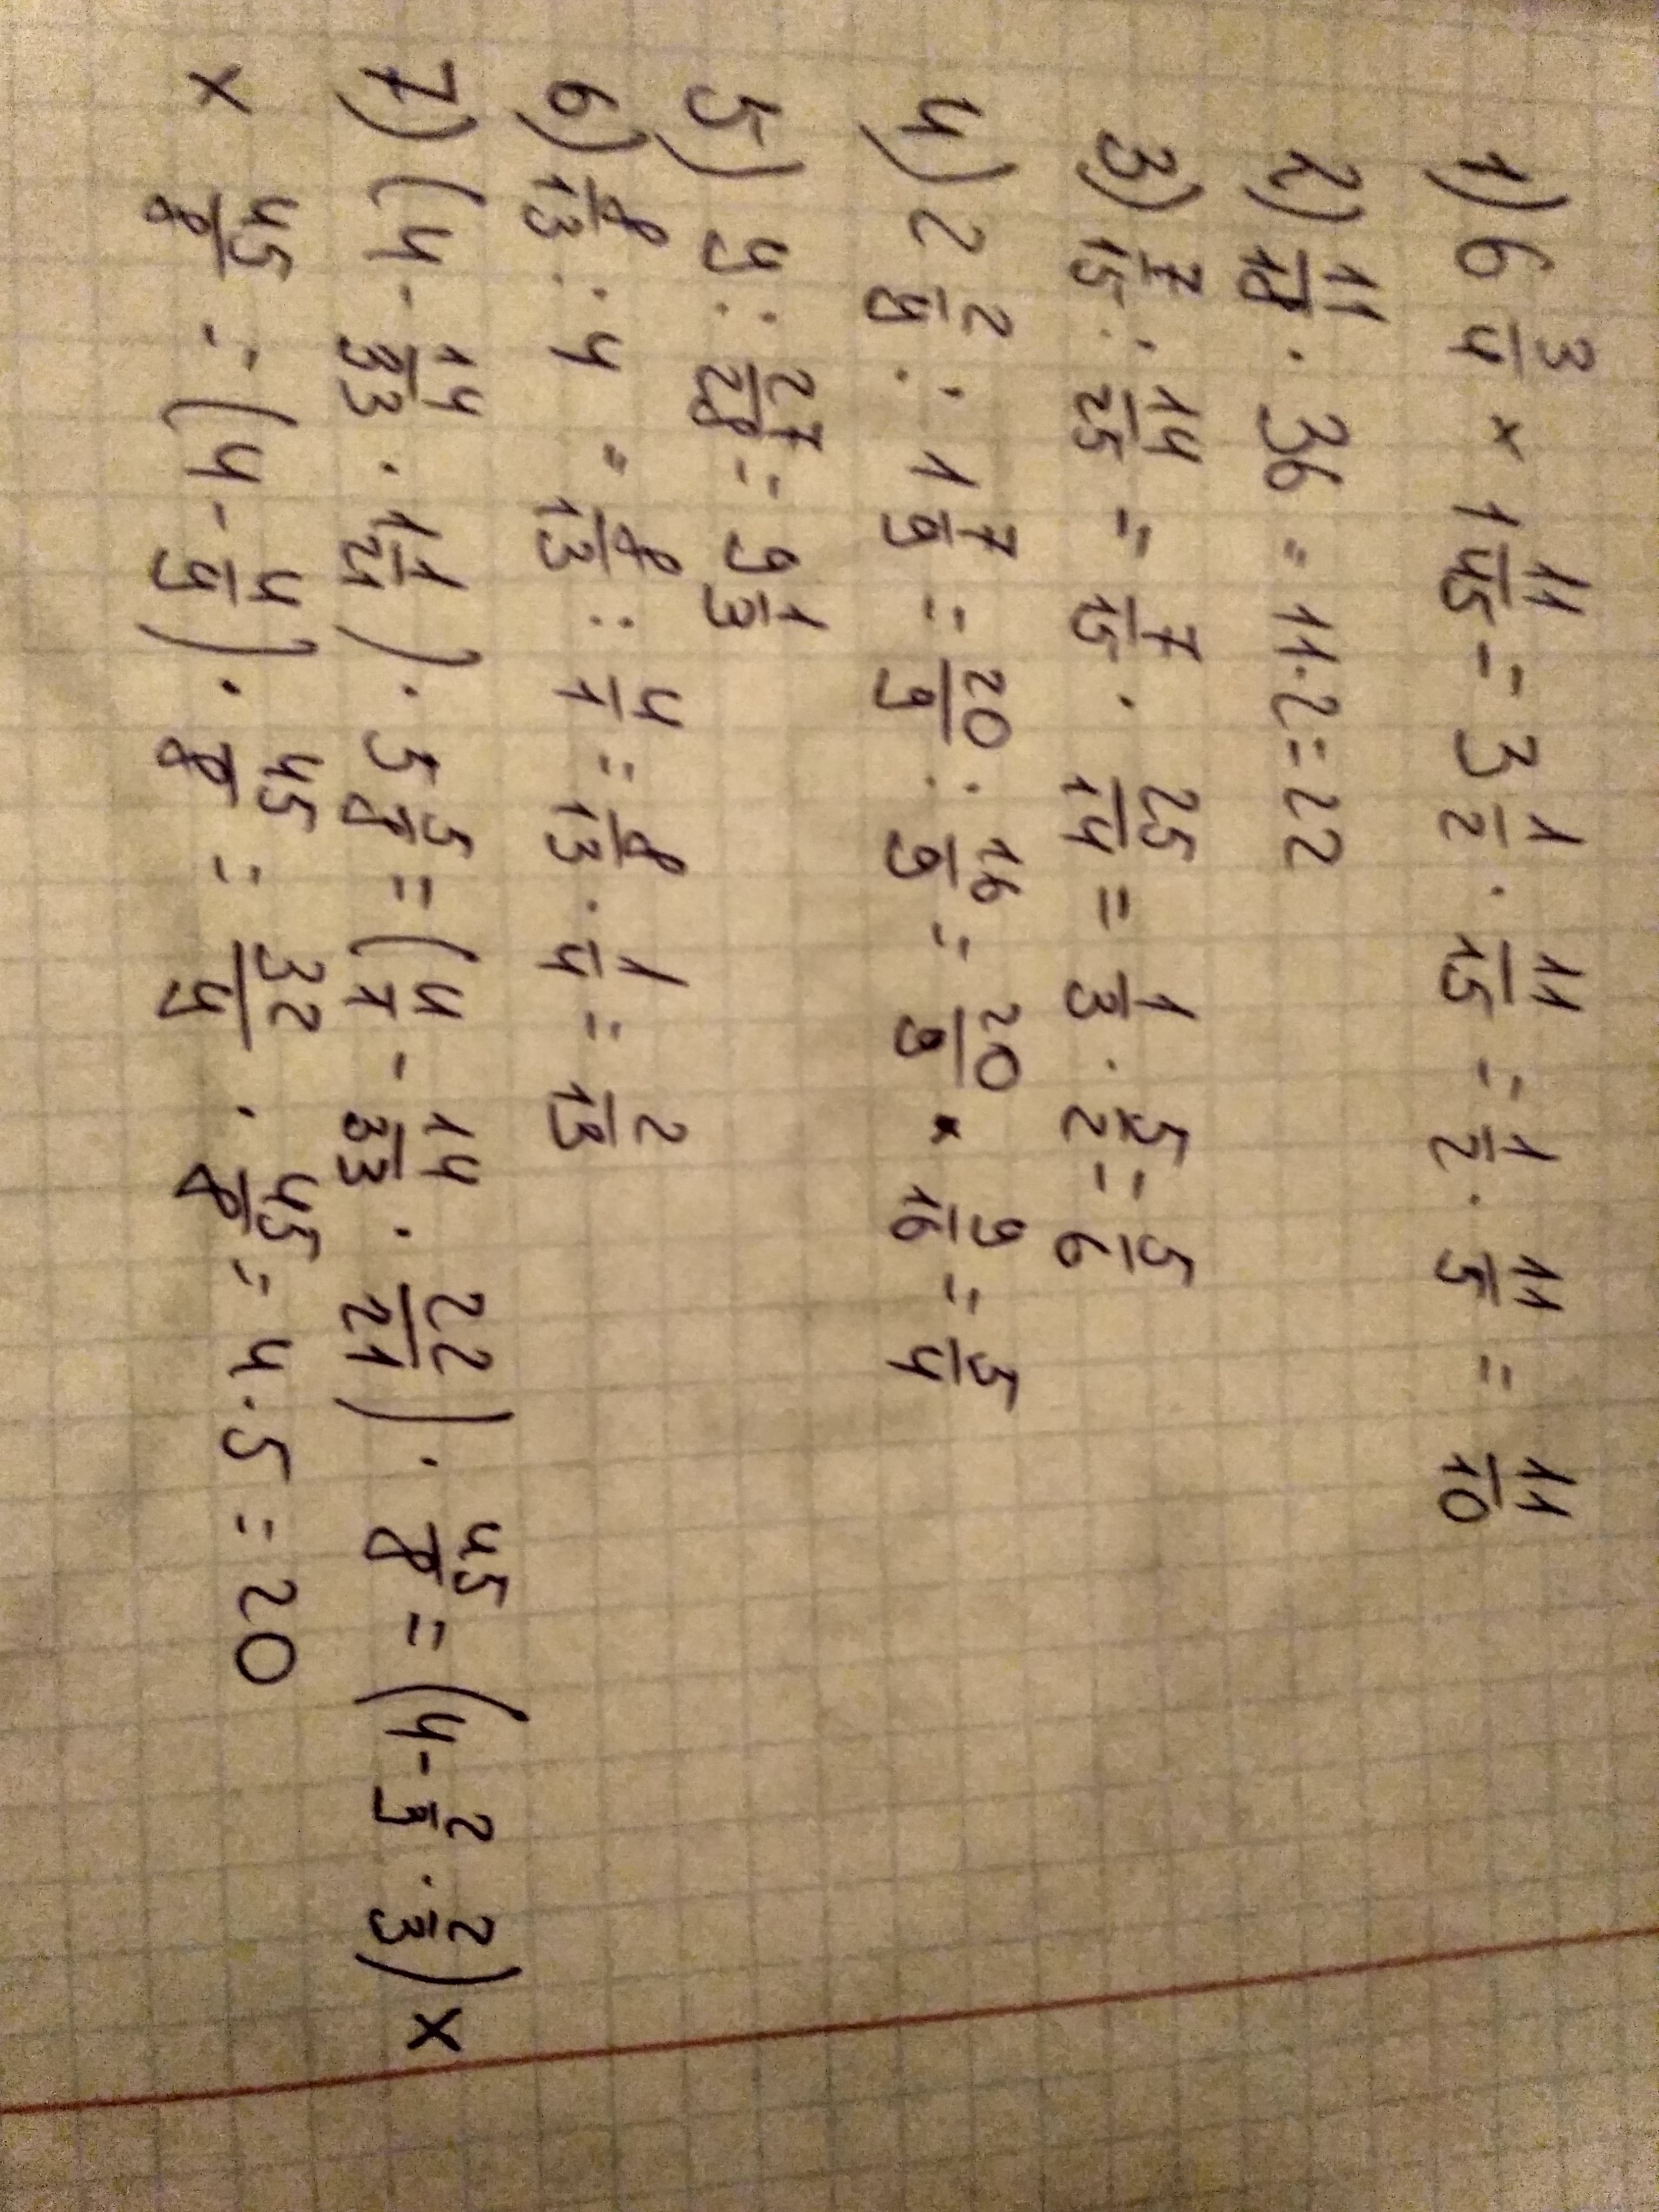 1) 6 3/4 × 1 11/45 = 3 1/2 · 11/15 = 1/2 · 11/5 = 11/10
2) 11/18 · 36 = 11 · 2 = 22
3) 7/15 : 14/25 = 7/15 · 25/14 = 1/3 · 5/2 = 5/6
4) 2 2/9 : 1 7/9 = 20/9 : 16/9 = 20/9 × 9/16 = 5/4
5) 9 : 27/28 = 9 1/3
6) 8/13 : 4 = 8/13 : 4/1 = 8/13 · 1/4 = 2/13
7) (4 - 14/33 · 1 1/21) · 5 5/8 = (4/1 - 14/33 · 22/21) · 45/8 = (4 - 2/3 · 2/3) ×
× 45/8 = (4 - 4/9) · 45/8 = 32/9 · 45/8 = 4 · 5 = 20